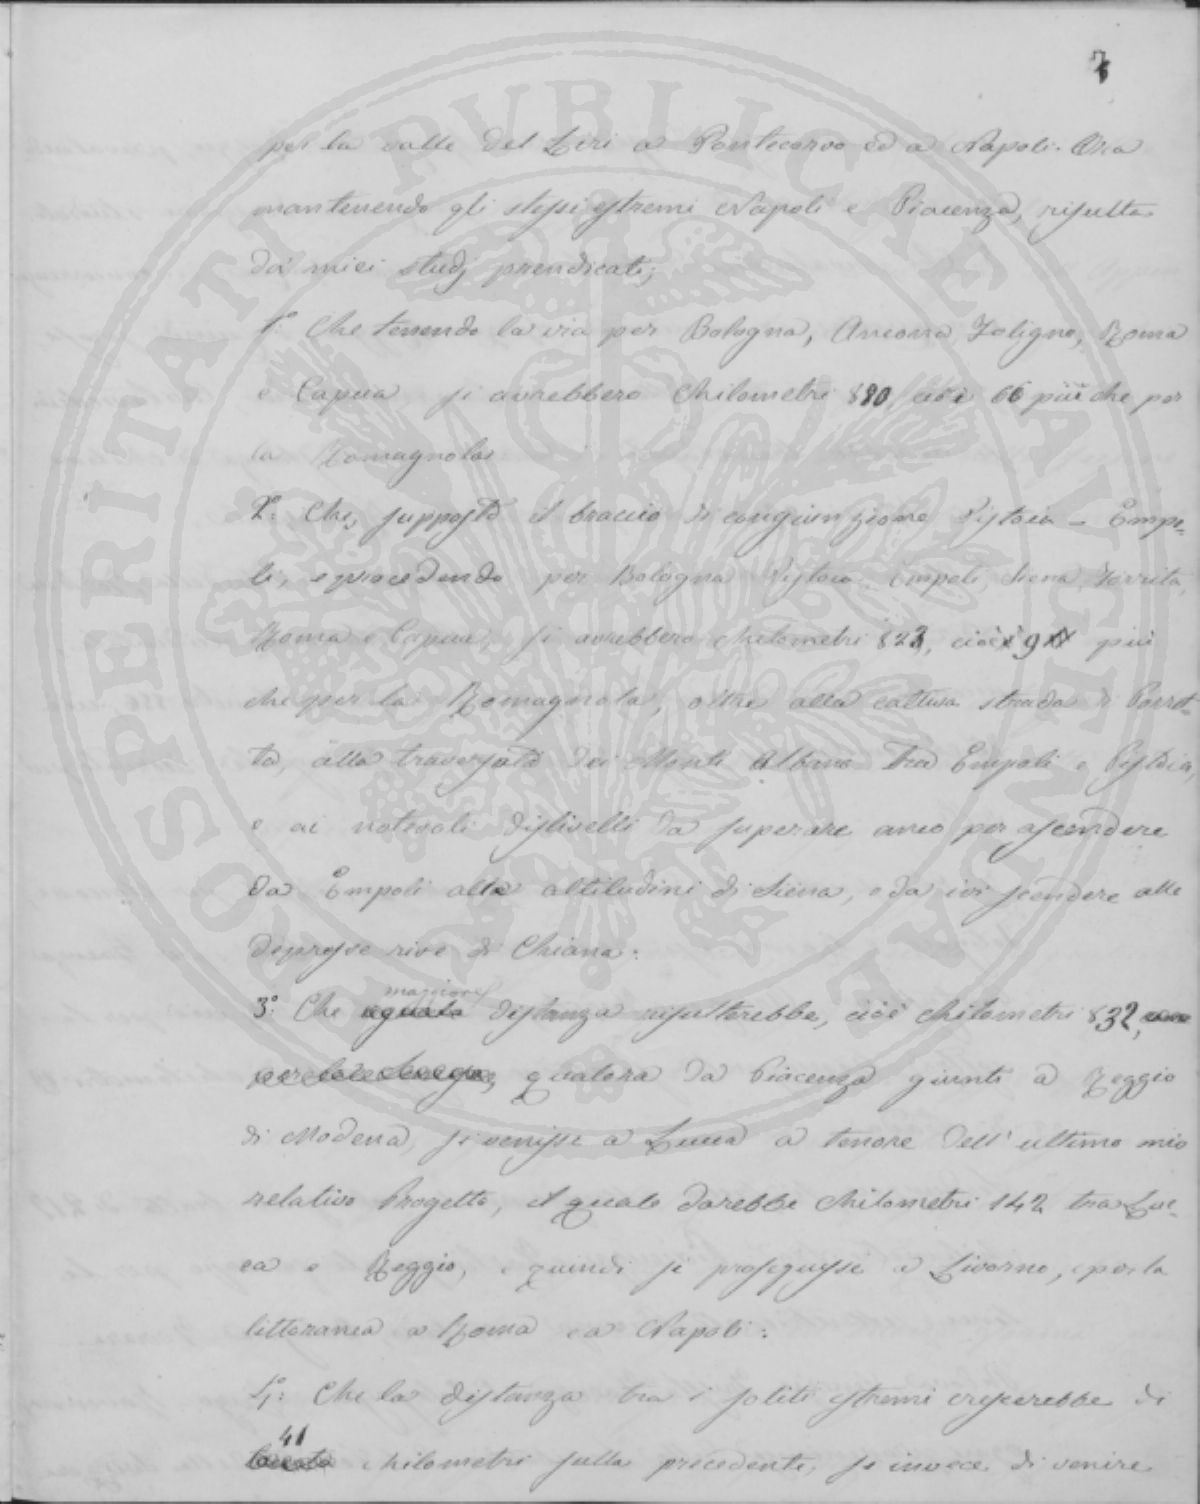 7
per la valle del Liri a Pontecorvo ed a Napoli. Ora
mantenendo gli stessi estremi Napoli e Piacenza, risulta
da' miei studj prendicati;
1º: Che tenendo la via per Bologna, Ancona, Foligno, Roma
e Capua si avrebbero Chilometri 880, cioè 66 più che per
la Romagnola:
2º: Che, supposto il braccio di congiunzione Pistoia – Empo=
li, e procedendo per Bologna Pistoia, Empoli, Siena, Torrita,
Roma e Capua, si avrebbero chilometri 823, cioè 9 più
che per la Romagnola, oltre alla cattiva strada di Porret=
ta, alla traversata dei Monti Albano tra Empoli e Pistoia,
e ai notevoli dislivelli da superare anco per ascendere
da Empoli alla altitudini di Siena, e da ivi scendere alle
depresse rive di Chiana:
maggiore
3º: Che uguale distanza risulterebbe, cioè chilometri 832,
qualora da Piacenza giunti a Reggio
di Modena, si venisse a Lucca a tenore dell'ultimo mio
relativo Progetto, il quale darebbe chilometri 142 tra Luc=
ca e Reggio, e quindi si proseguisse a Livorno, e per la
littoranea a Roma e a Napoli:
4º: Che la distanza tra i soliti estremi crescerebbe di
41
chilometri sulla precedente, se invece di venire
PROSPERITATI PVBLICAE AVGENDAE